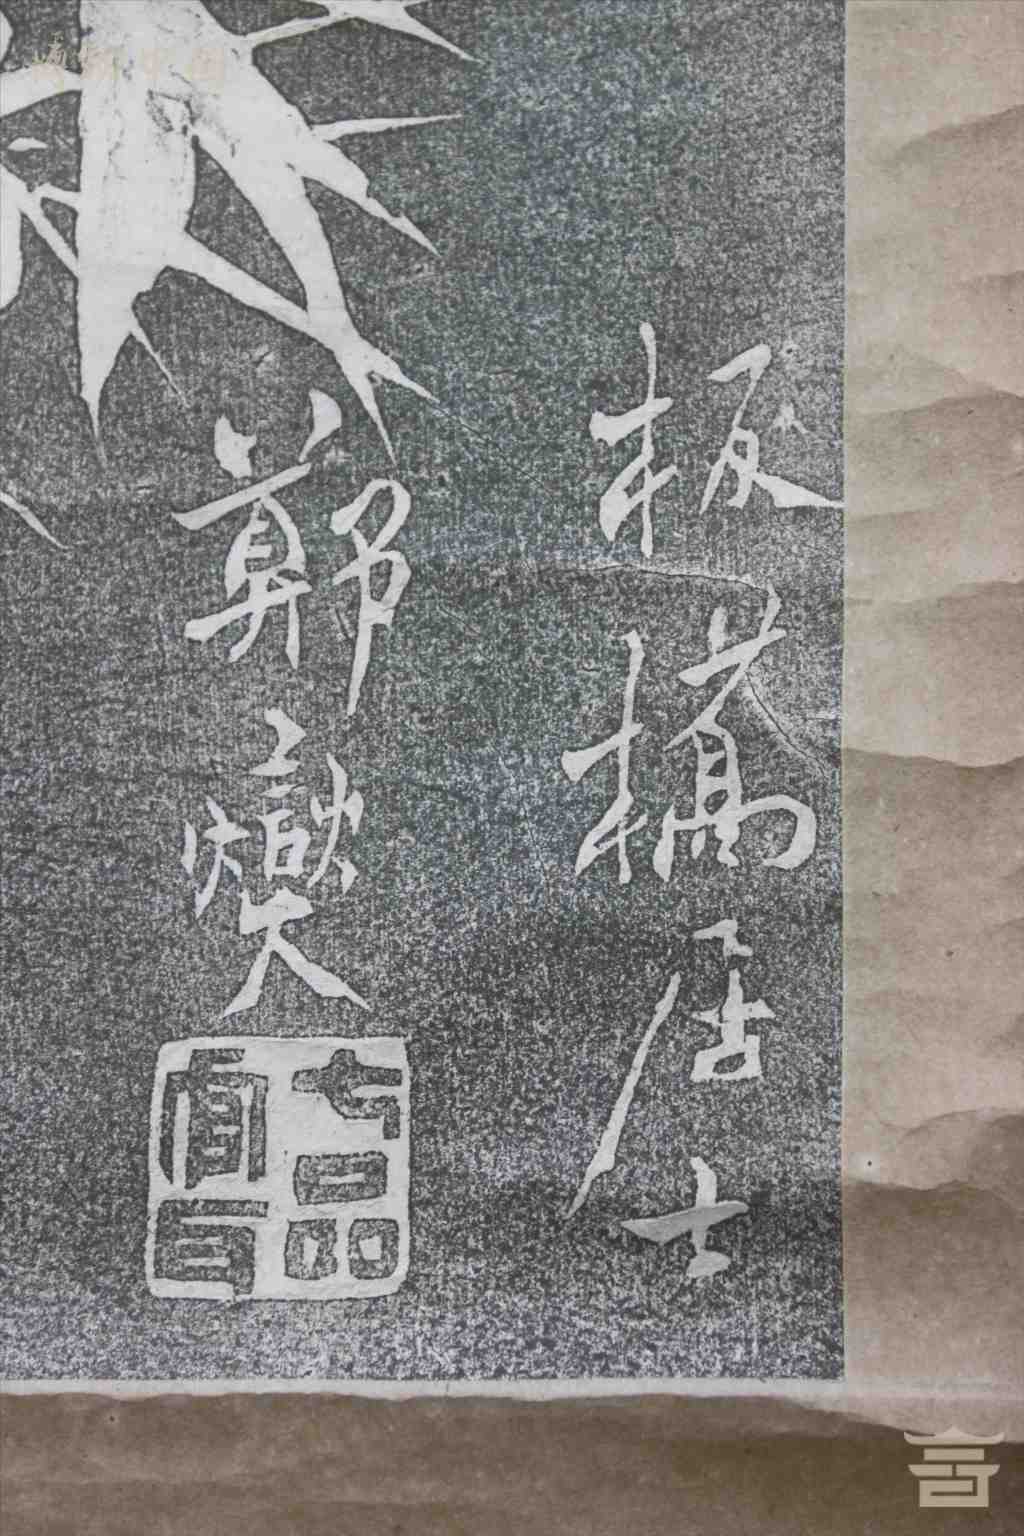 板橋居士
鄭燮
七品官耳